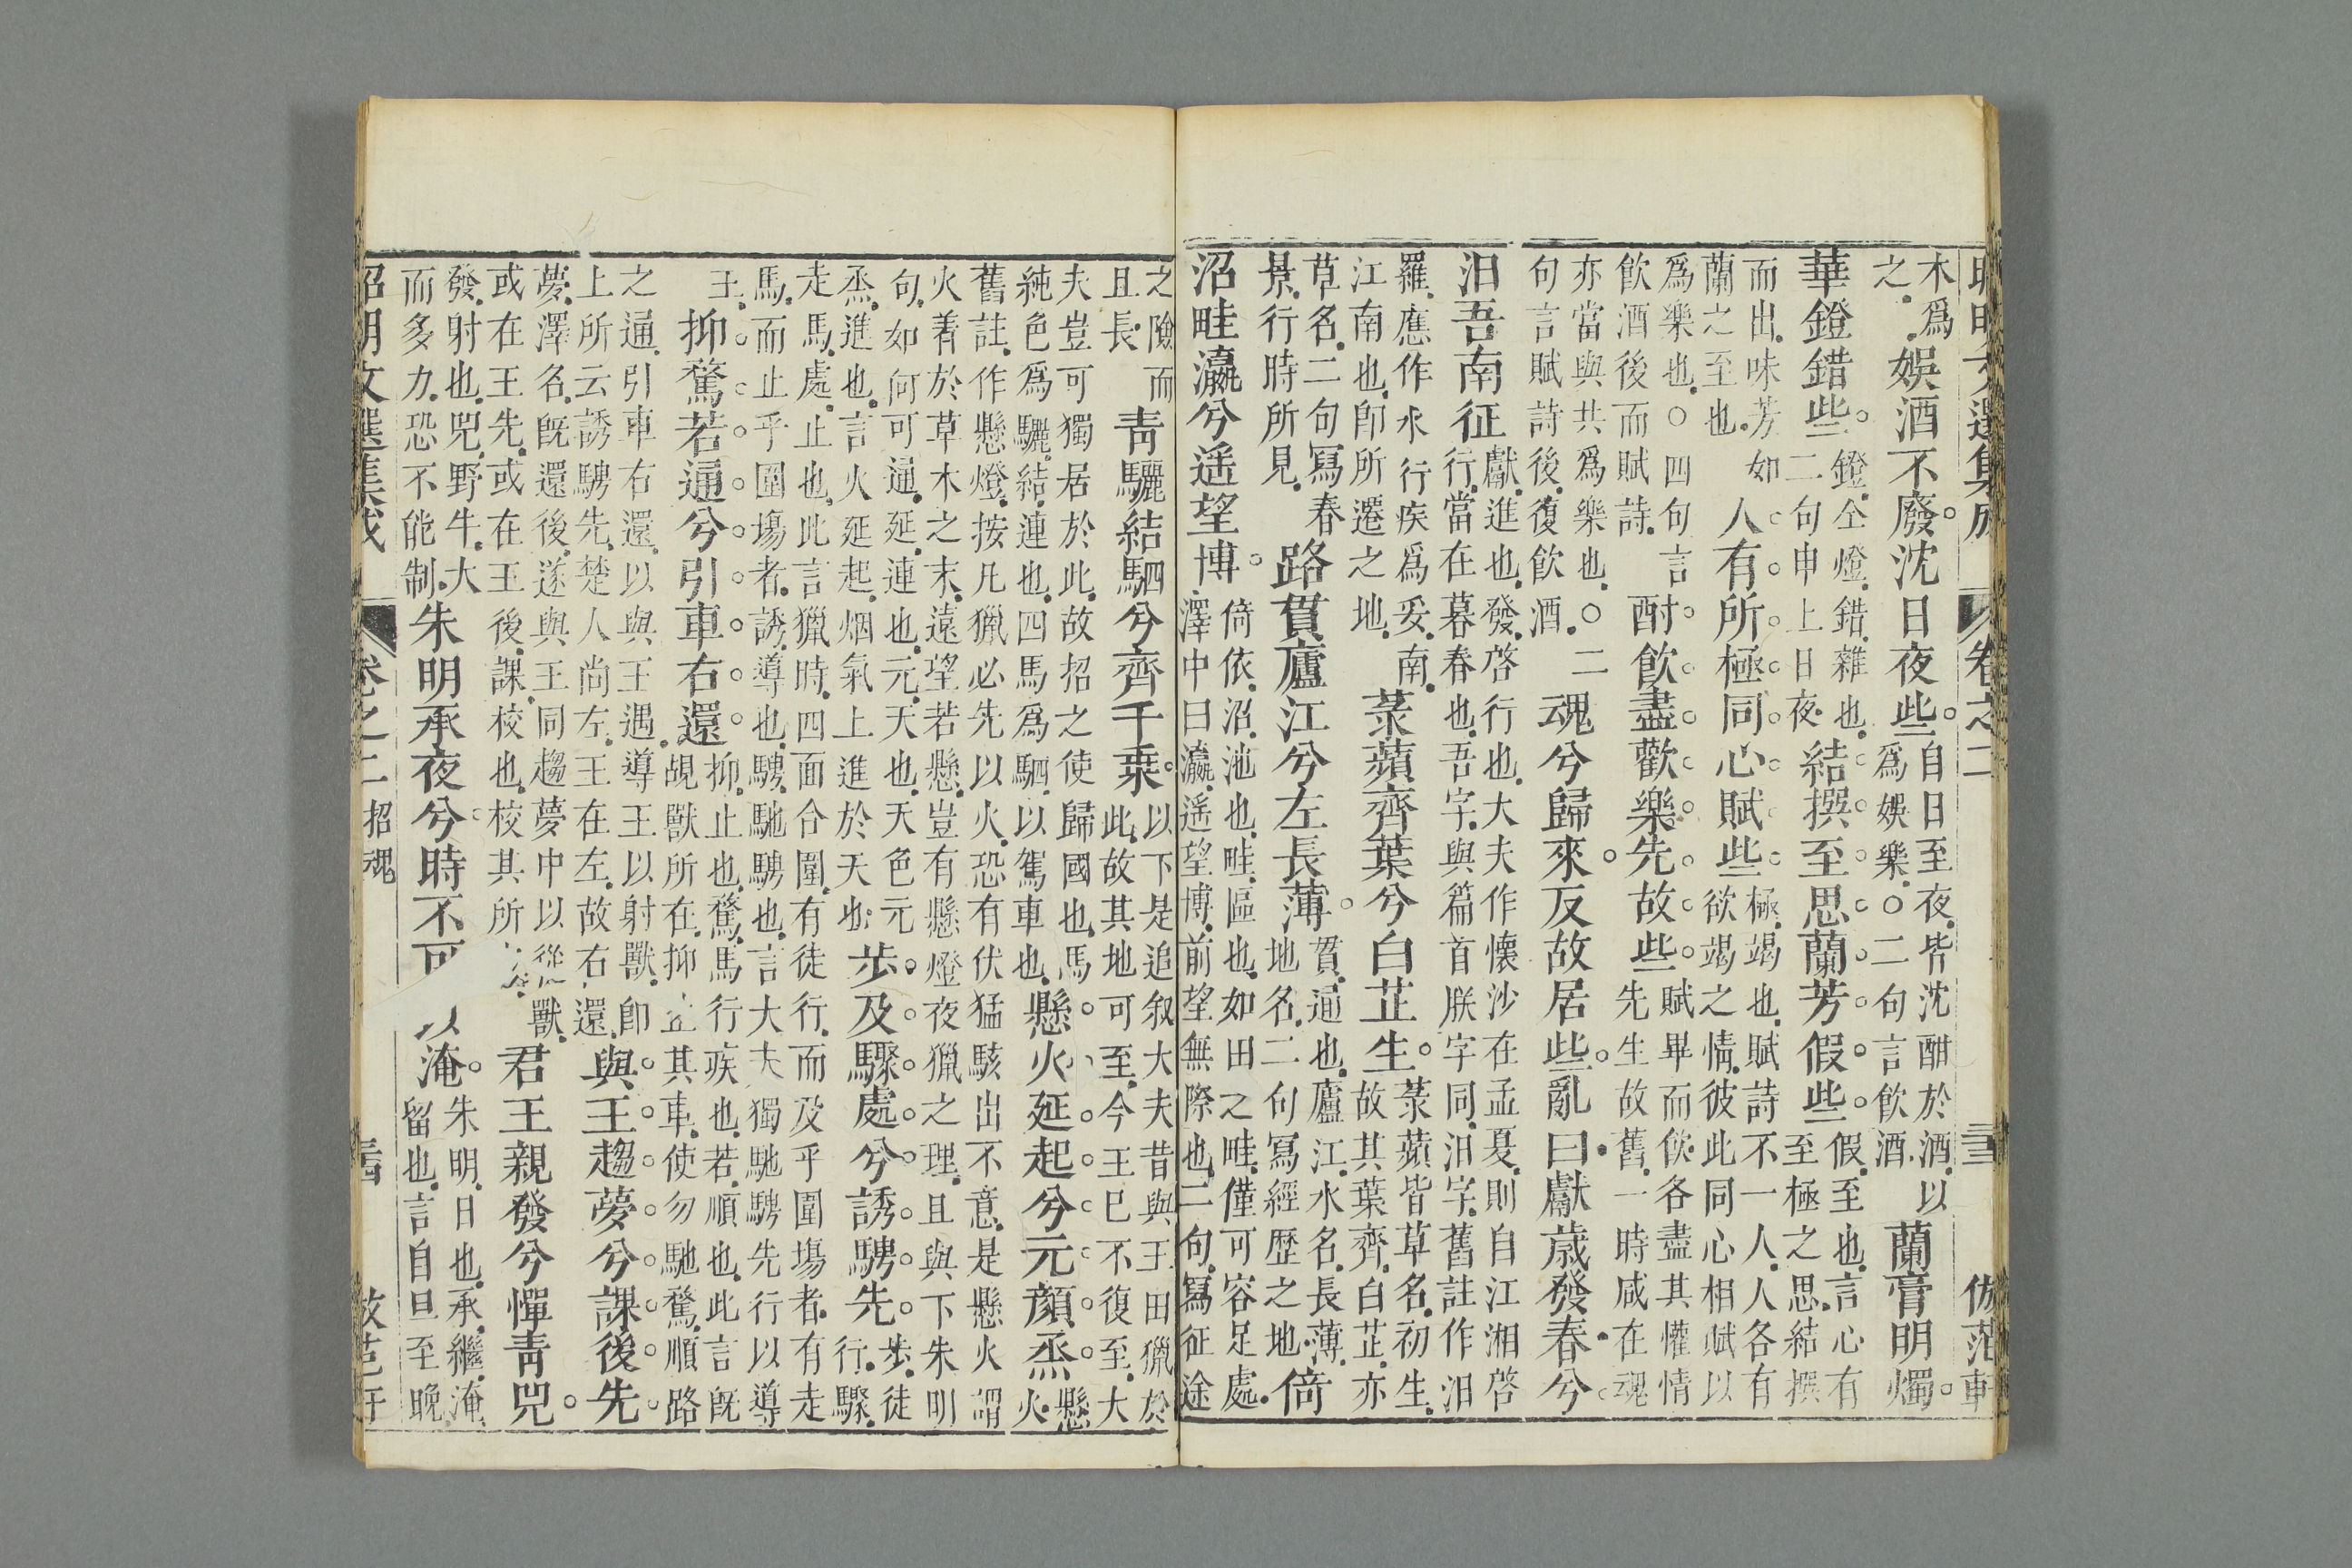 昭明文選集成 卷之二 三三 倣范軒
木爲
之
娛酒不廢沈日夜些
自日至夜皆沈酣於酒以
爲娛樂○二句言飲酒
蘭膏明燭
華鐙錯些
鐙仝燈錯雜也
二句申上日夜
結撰至思蘭芳假些
假至也言心有
至極之思結撰
而出味芳如
蘭之至也
人有所極同心賦些
極竭也賦詩不一人人各有
欲竭之情彼此同心相賦以
爲樂也○四句言
飲酒後而賦詩
酎飲盡歡樂先故些
賦畢而飲各盡其懽情
先生故舊一時咸在魂
亦當與共爲樂也○二
句言賦詩後復飲酒
魂兮歸來反故居些亂曰獻歲發春兮
汨吾南征
獻進也發啓行也大夫作懷沙在孟夏則自江湘啓
行當在暮春也吾字與篇首朕字同汨字舊註作汨
羅應作氺行疾爲妥南
江南也卽所遷之地
菉蘋齊葉兮白芷生
菉蘋皆草名初生
故其葉齊白芷亦
草名二句冩春
景行時所見
路貫廬江兮左長薄
貫通也廬江水名長薄
地名二句冩經歷之地
倚
沼畦瀛兮遥望博
倚依沼池也畦區也如田之畦僅可容足處
澤中曰瀛遥望博前望無際也二句冩征途
之險而
且長
靑驪結駟兮齊千乗
以下是追叙大夫昔與王田獵於
此故其地可至今王已不復至大
夫豈可獨居於此故招之使歸國也馬
純色爲驪結連也四馬爲駟以駕車也
懸火延起兮元顏烝
懸
火
舊註作懸燈按凡獵必先以火恐有伏猛駭出不意是懸火謂
火着於草木之末遠望若懸豈有懸燈夜獵之理且與下朱明
句如何可通延連也元天也天色元
烝進也言火延起烟氣上進於天也
步及驟處兮誘騁先
步徒
行驟
走馬處止也此言獵時四面合圍有徒行而及乎圍塲者有走
馬而止乎圍塲者誘導也騁馳騁也言大夫獨馳騁先行以導
王
抑騖若通兮引車右還
抑止也騖馬行疾也若順也此言旣
覘獸所在抑止其車使勿馳騖順路
之通引車右還以與王遇導王以射獸卽
上所云誘騁先楚人尚左王在左故右還
與王趨夢兮課後先
夢澤名旣還後遂與王同趨夢中以從獸
或在王先或在王後課校也校其所
君王親發兮憚靑兕
發射也兕野牛大
而多力恐不能制
朱明承夜兮時不可以淹
朱明日也承繼淹
留也言自旦至晚
昭明文選集成 卷之二 招魂 三四 倣范軒